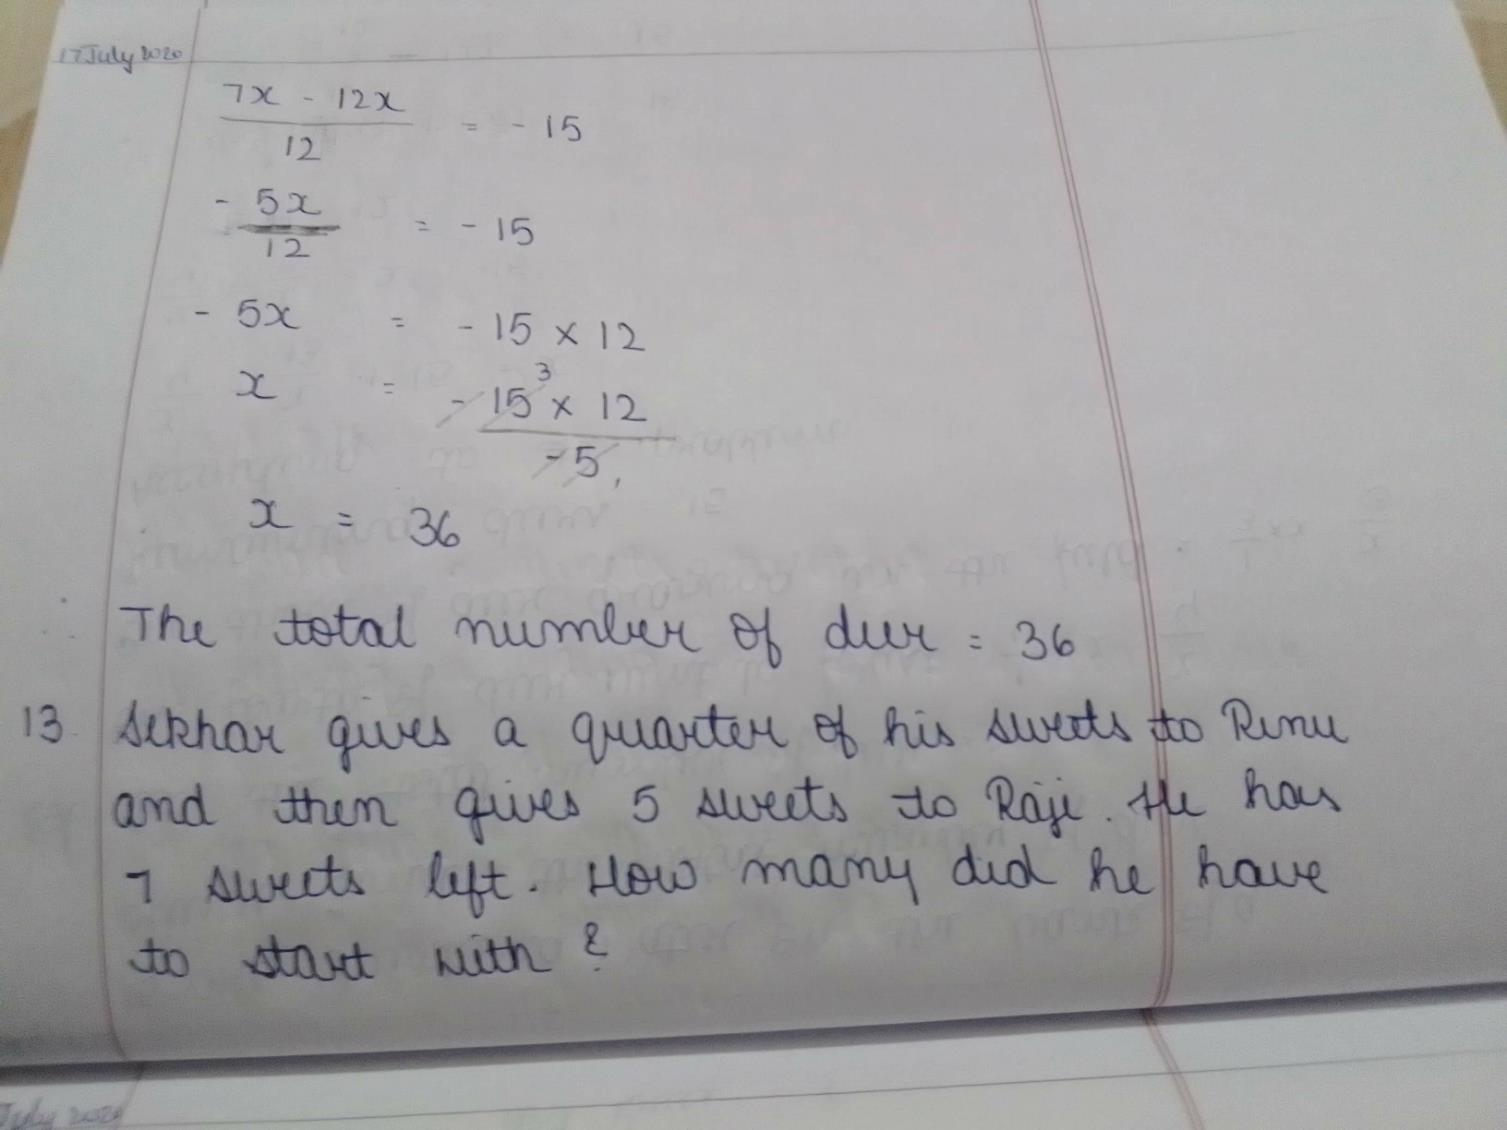 17 July 2020
7x - 12x / 12 = - 15
- 5x / 12 = - 15
- 5x = - 15 x 12
x = - 15 3 x 12 / - 5,
x = 36
∴ The total number of deer = 36
13. Sekhar gives a quarter of his sweets to Renu
and then gives 5 sweets to Raji. He has
7 sweets left. How many did he have
to start with ?
July 2020